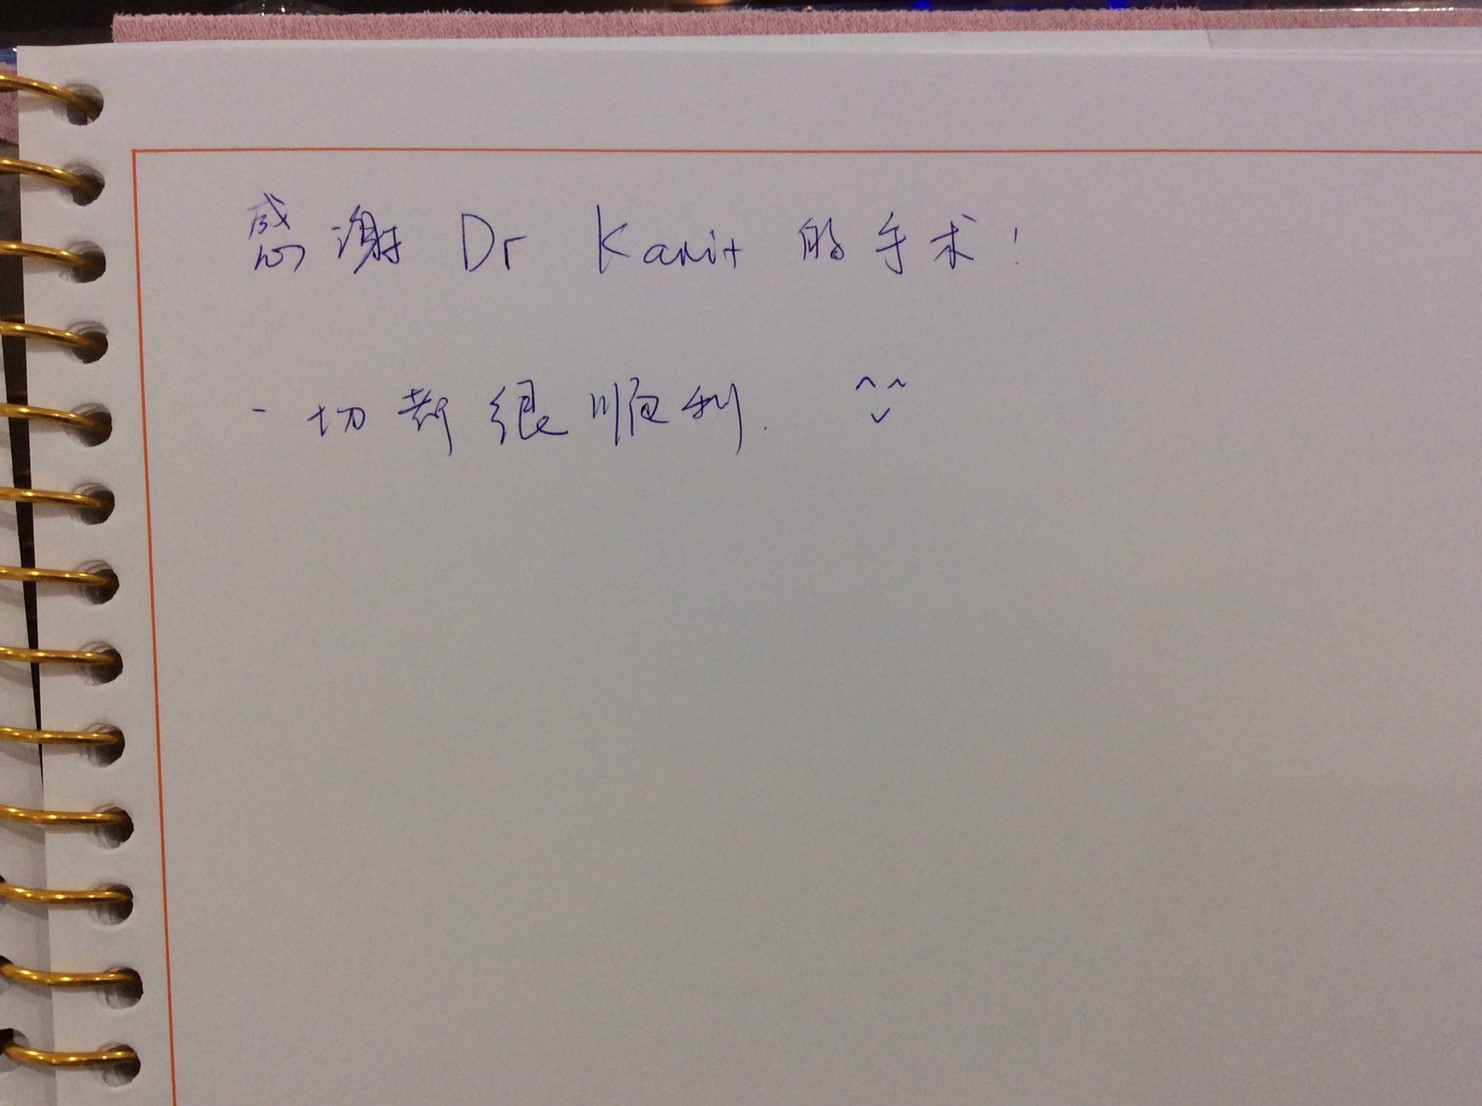 感谢 Dr Kanit 的手术!
一切都很顺利. ^^